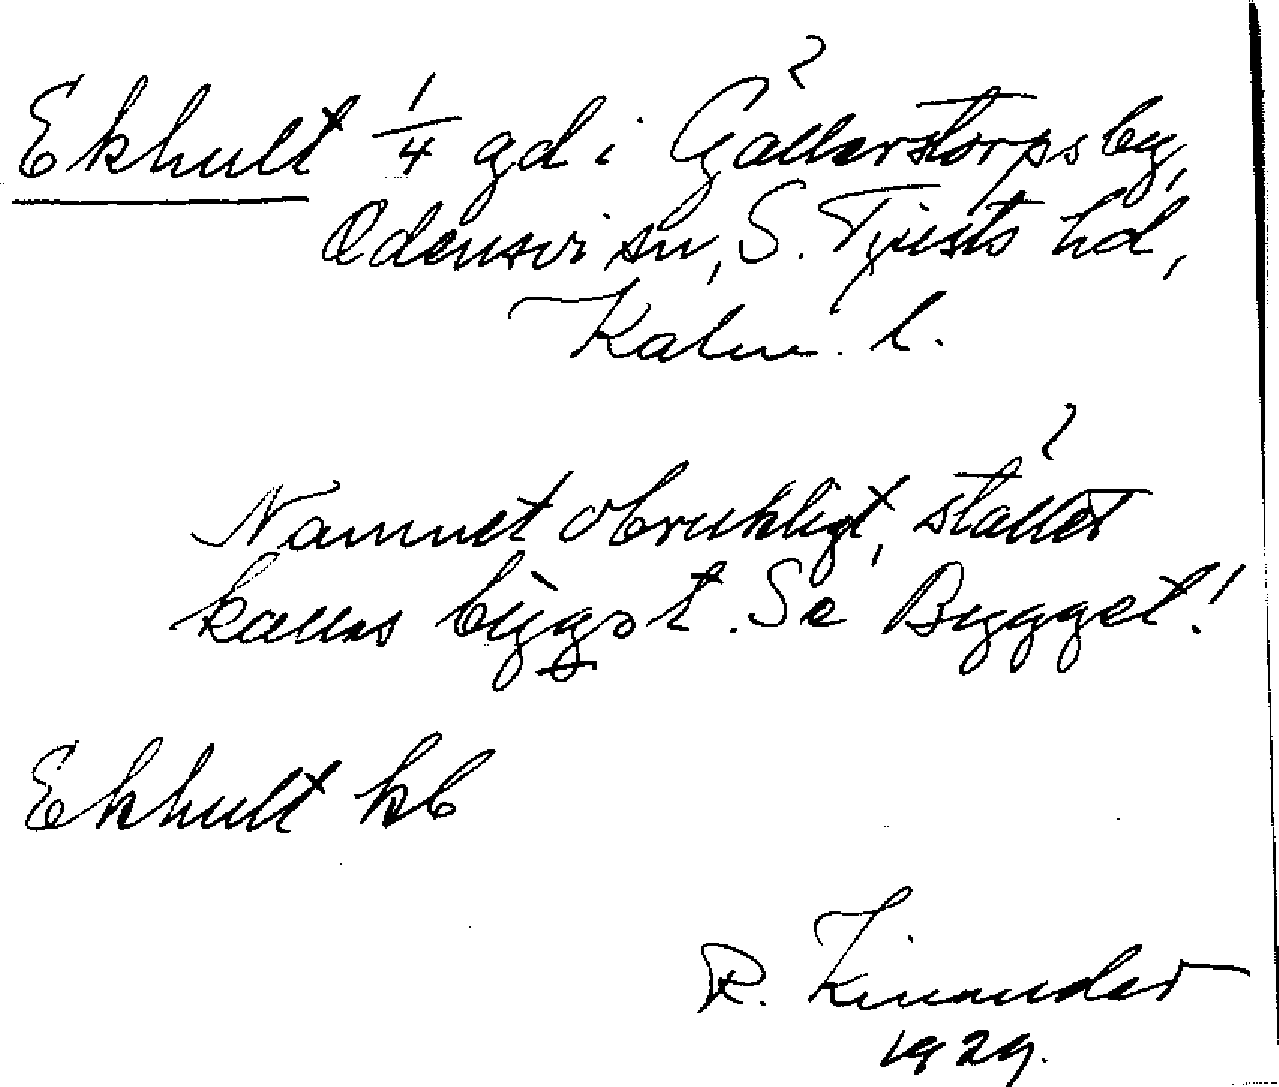 Ekhult 1/4 gd i Gällerstorps by,
Odensvi sn, S. Tjusts hd,
Kalm. l.
Namnet obrukligt, stället
kallas byggət. Se Bygget!
Ekhult kb
R. Kinander
1929.